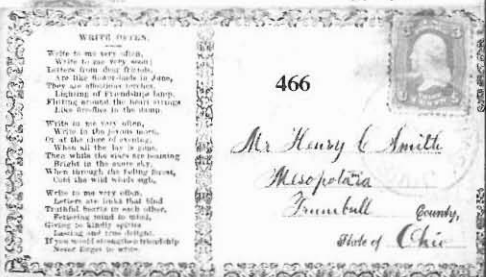 WRITE OFTEN.
Write to me very often,
Write to me very soon;
Letters from dear friends,
Are like flower-buds in June,
They are affections torches,
Lighting of Friendships lamp,
Flitting around the heart strings
Like fire-flies in the damp.
Write to me very often,
Write in the joyous morn,
Or at the close of evening,
When all the day is gone.
Then while the stars are beaming
Bright in the azure sky,
When through the fading forest,
Cold the wild winds sigh,
Write to me very often,
Letters are links that bind
Truthful hearts to each other,
Fettering mind to mind,
Giving to kindly spirits
Lasting and true delight,
If you would strengthen friendship
Never forget to write.
466
Mr Henry C Smith
Mesopotaia
Trumbull County,
State of Ohio